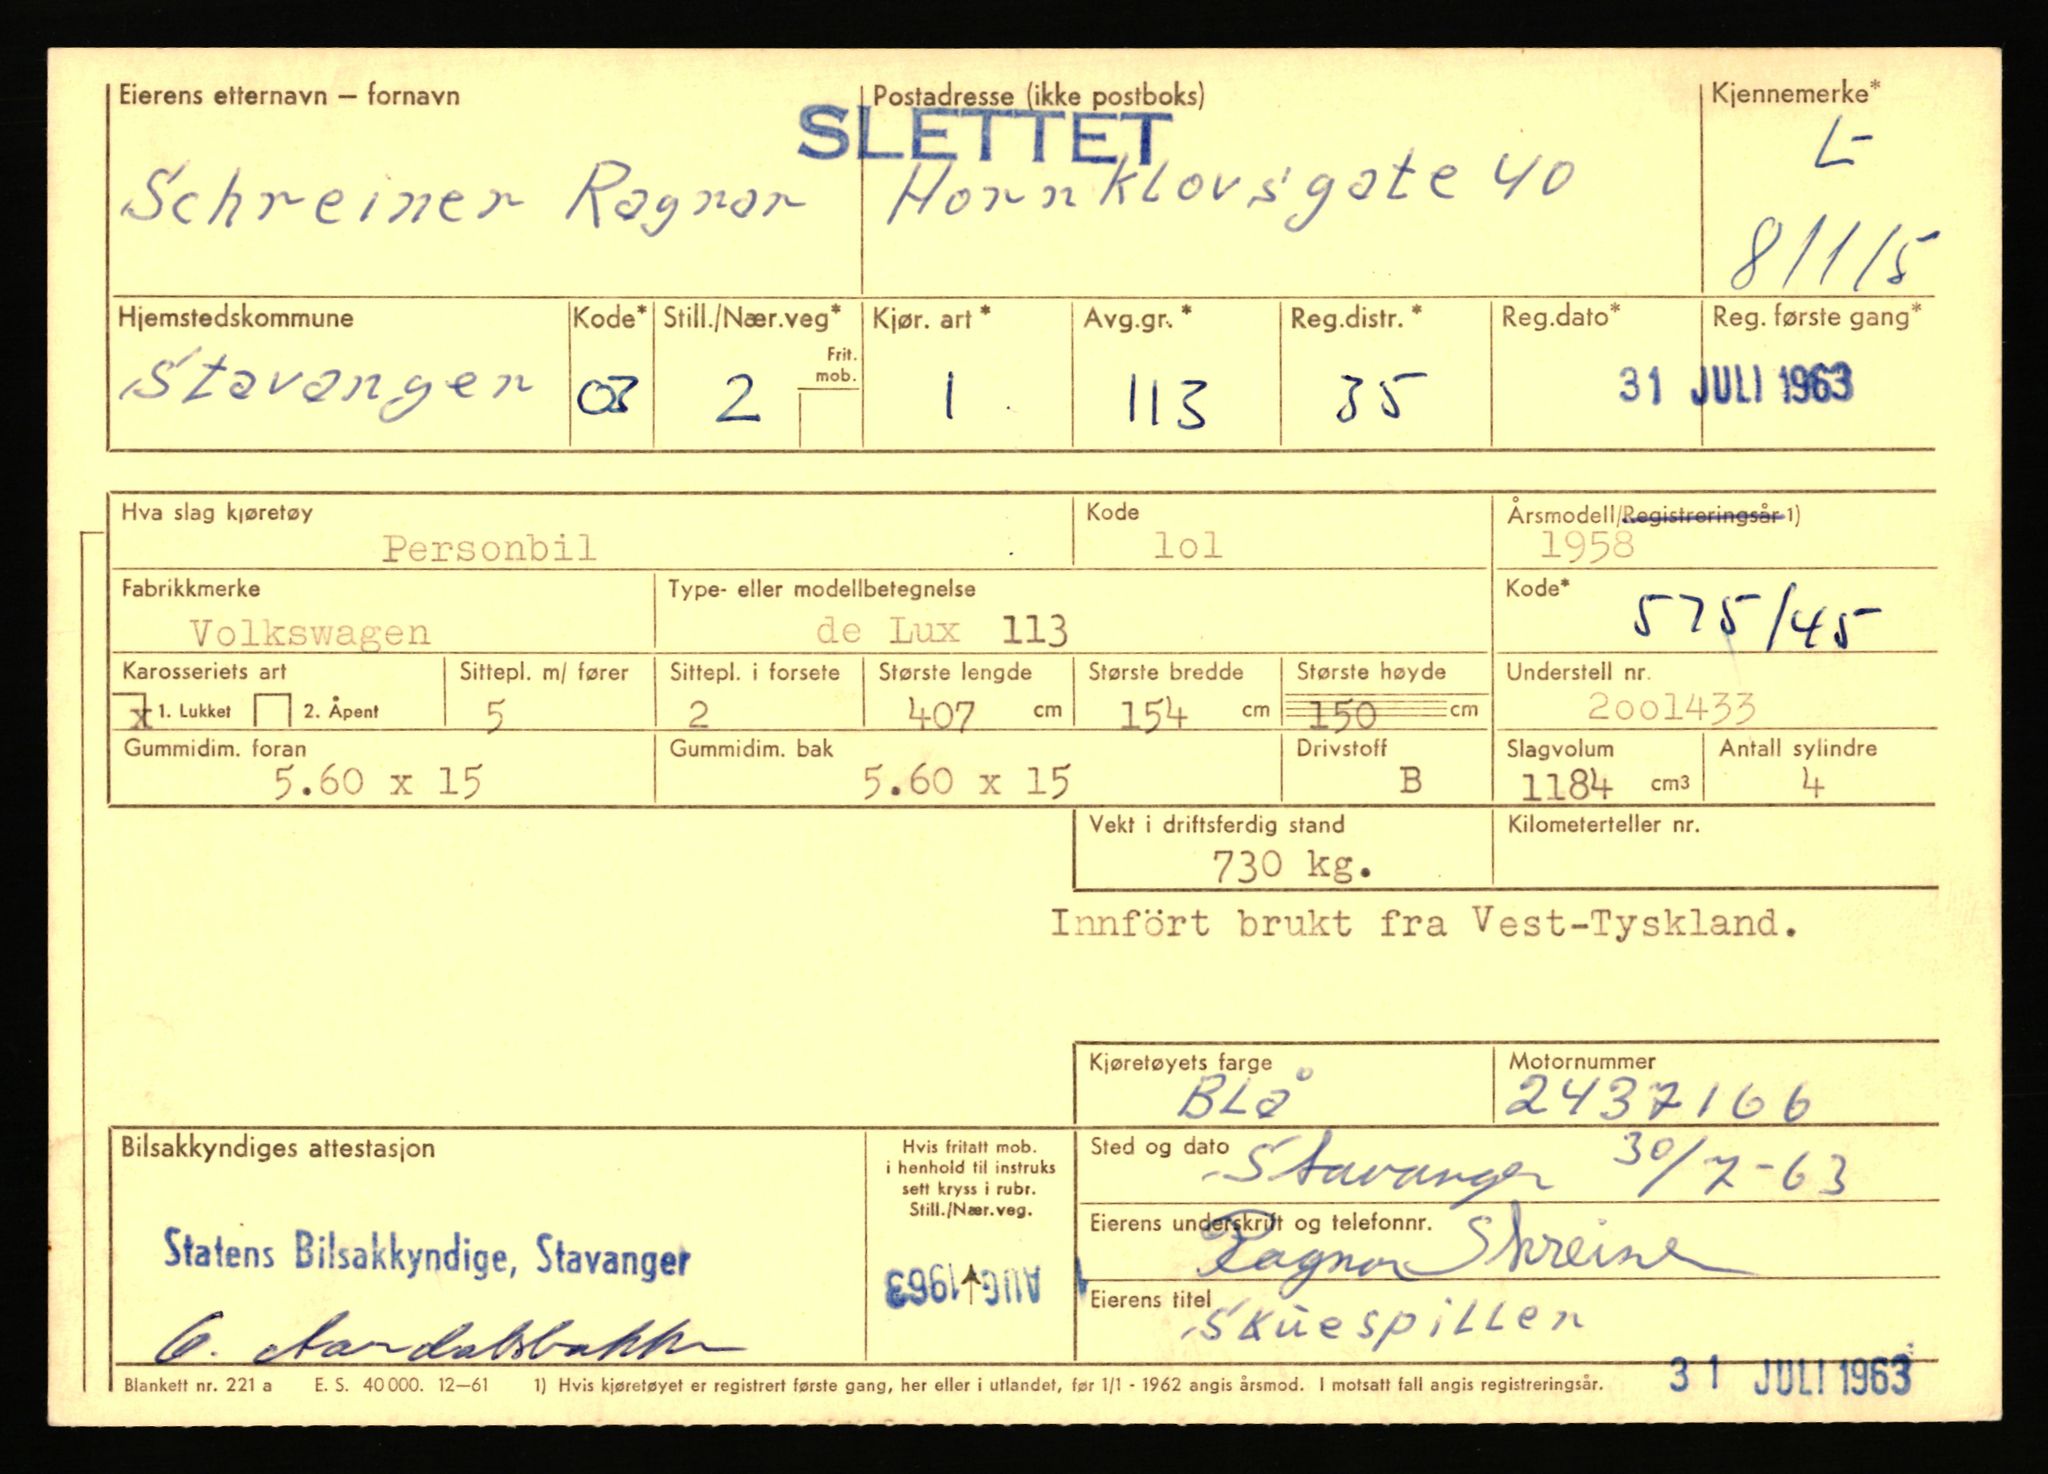 Eierens etternavn – fornavn
Postadresse (ikke postboks)
Kjennemerke*
SLETTET
L-
Schreiner Ragnar
Hornklovsgate 40
8/1/5
Hjemstedskommune
Kode*
Still./Nær.veg*
Kjør. art *
Avg.gr. *
Reg.distr. *
Reg.dato*
Reg. første gang*
Frit.
mob.
Stavanger
03
2
1
113
35
31 JULI 1963
Hva slag kjøretøy
Kode
Årsmodell/Registreringsår 1)
Personbil
lol
1958
Fabrikkmerke
Type- eller modellbetegnelse
Kode*
Volkswagen
de Lux 113
575/45
Karosseriets art
Sittepl. m/ fører
Sittepl. i forsete
Største lengde
Største bredde
Største høyde
Understell nr.
x 1. Lukket
2. Åpent
5
2
407 cm
154 cm
150 cm
2001433
Gummidim. foran
Gummidim. bak
Drivstoff
Slagvolum
Antall sylindre
5.60 x 15
5.60 x 15
B
1184 cm3
4
Vekt i driftsferdig stand
Kilometerteller nr.
730 kg.
Innfört brukt fra Vest-Tyskland.
Kjøretøyets farge
Motornummer
BLå
2437166
Bilsakkyndiges attestasjon
Hvis fritatt mob.
i henhold til instruks
sett kryss i rubr.
Still./Nær.veg.
Sted og dato
Stavanger 30/7-63
Eierens underskrift og telefonnr.
Ragnar Schreiner
Statens Bilsakkyndige, Stavanger
AUG 1963
Eierens titel
Skuespiller
Blankett nr. 221 a E. S. 40 000. 12–61 1) Hvis kjøretøyet er registrert første gang, her eller i utlandet, før 1/1 - 1962 angis årsmod. I motsatt fall angis registreringsår.
31 JULI 1963